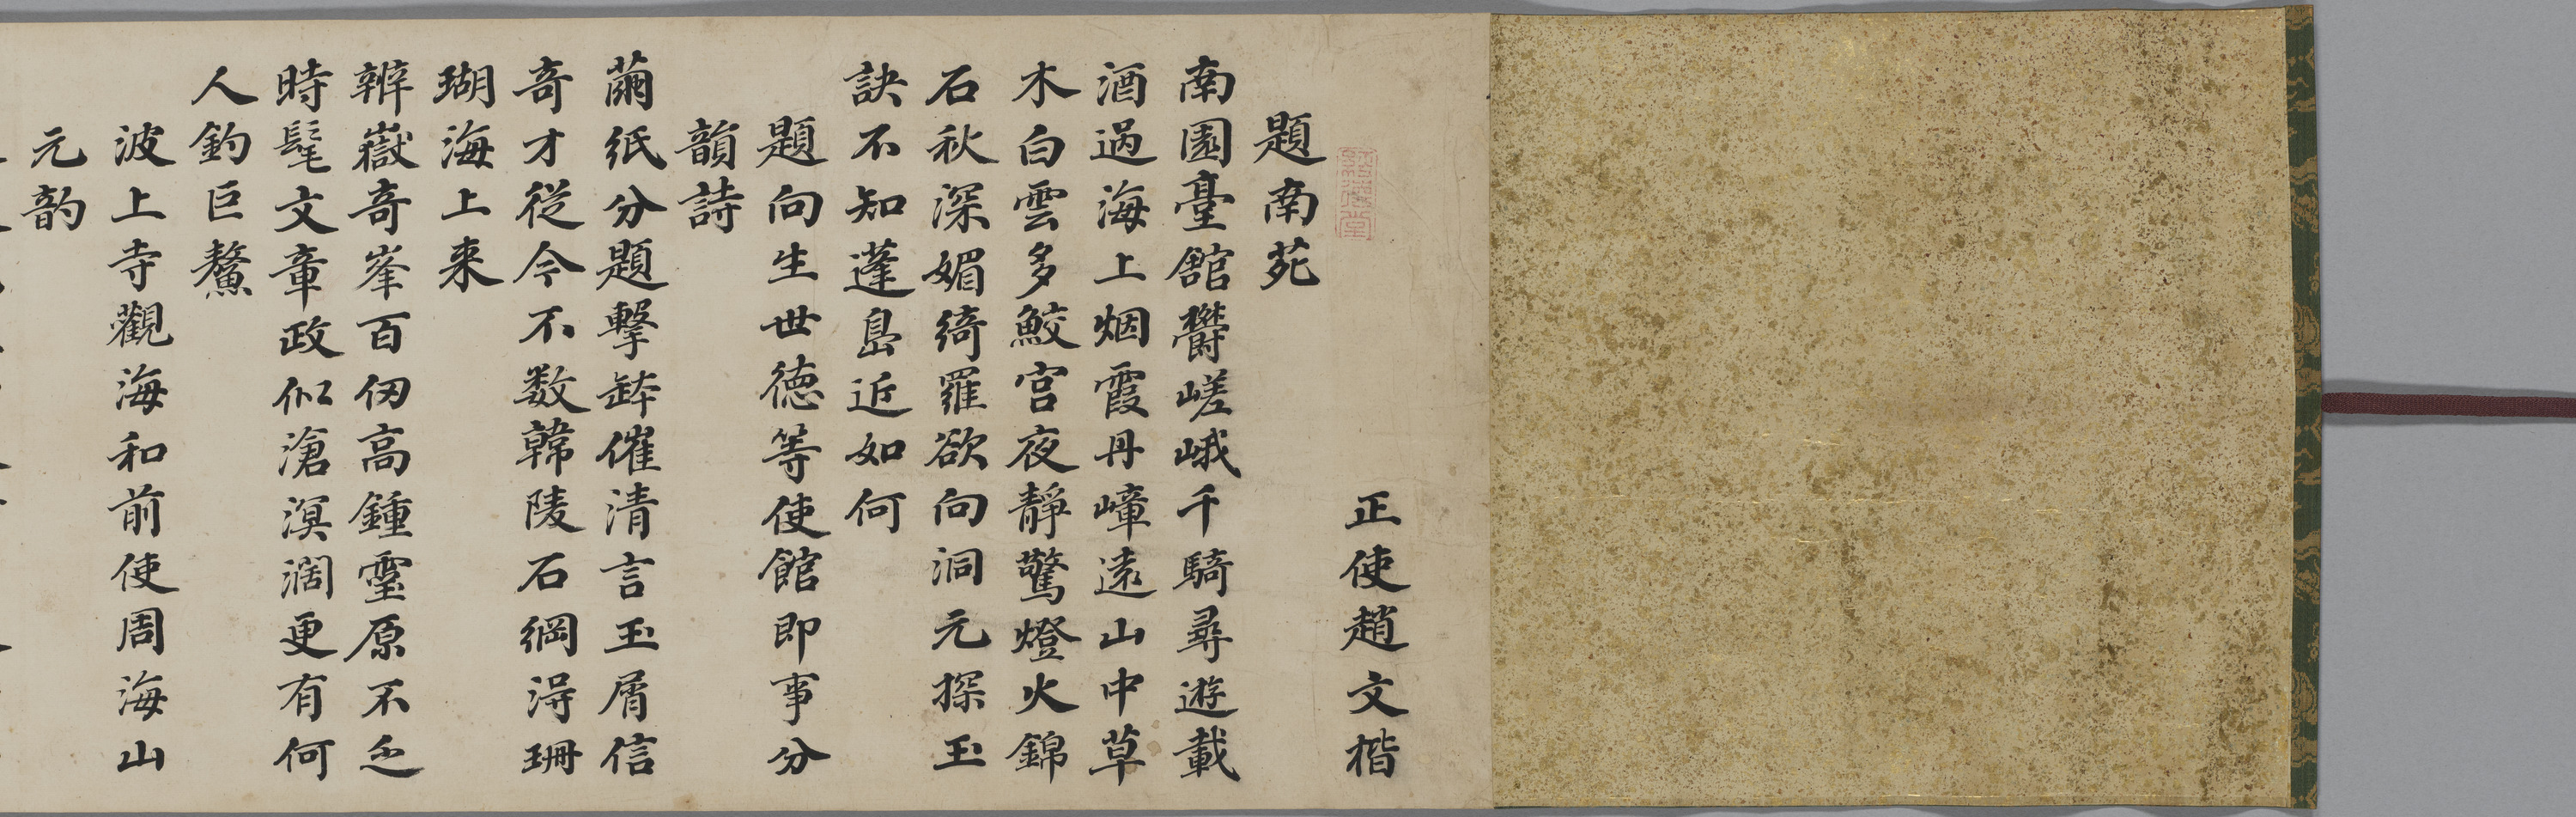 正使趙文楷
題南苑
南園臺館欝嵯峨千騎尋遊載
酒過海上烟霞丹嶂遠山中草
木白雲多鮫宮夜靜驚燈火錦
石秋深媚綺羅欲向洞元探玉
訣不知蓬島近如何
題向生世德等使館即事分
韻詩
繭紙分題擊鉢催清言玉屑信
奇才從今不数韓陵石網得珊
瑚海上来
辨嶽奇峯百仞高鍾靈原不乏
時髦文章政似滄溟濶更有何
人釣巨鰲
波上寺觀海和前使周海山
元韵